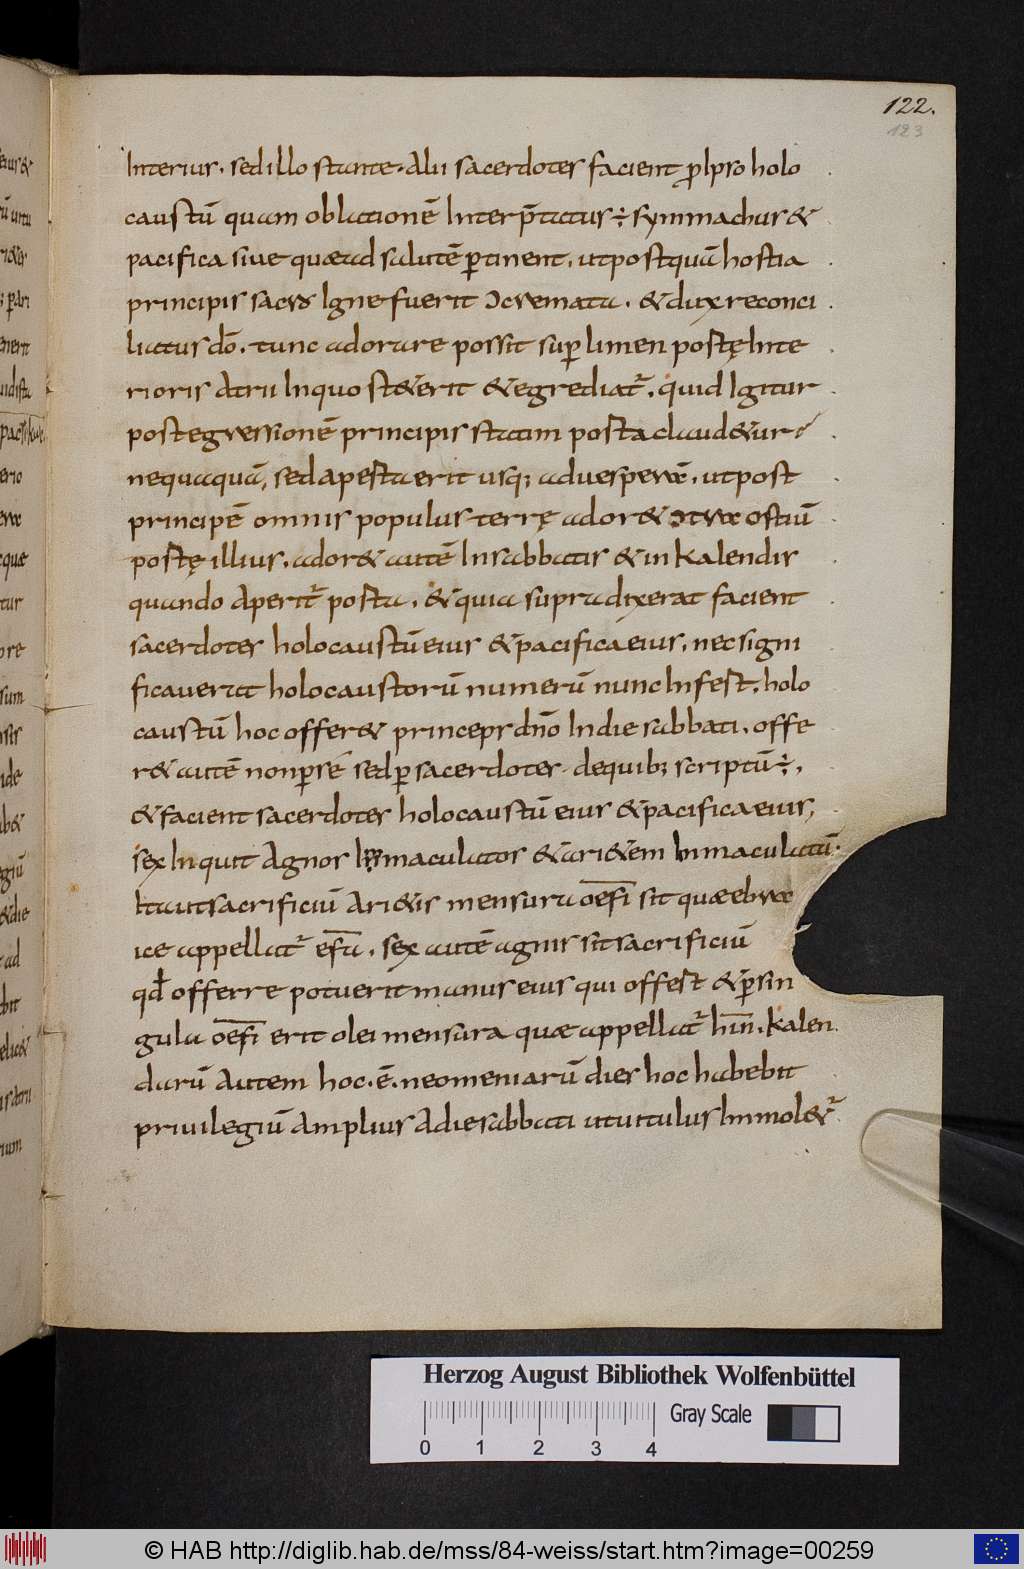 122.
123
Interius. sed illo stante. alii sacerdotes facient p̱ ipso holo
caustū quam oblationē Interp̄tatus ÷ symmachus &
pacifica siue quæ ad salutē ꝑtinent. ut postquā hostia
principis sacris Igne fuerit ↄcremata. & dux reconci
liatus dō. tunc adorare possit suꝑ limen portę Inte
rioris atrii In quo st&erit & egrediat̄. quid Igitur
post egressionē principis statim porta claud&ur
nequaquā, sed aperta erit usq; ad uesperā. ut post
principē omnis populus terrę ador& ↄtra ostiū
portę illius. ador& autē In sabbatis & in kalendis
quando aperit̄ porta. & quia supra dixerat facient
sacerdotes holocaustū eius & pacifica eius. nec signi
ficauerat holocaustorū numerū nunc Infert. holo
caustū hoc offer& princeps dn̄o In die sabbati. offe
r& autē non ꝑ se sed ꝑ sacerdotes. de quib; scriptū ÷,
& facient sacerdotes holocaustū eius & pacifica eius,
sex Inquit agnos Immaculatos & ari&em Inmaculatū.
Ita ut sacrificiū ari&is mensura oefi sit quæ ebra
ice appellat̄ efa. sex autē agnis sit sacrificiū
qđ offerre potuerit manus eius qui offert & ꝑ sin
gula oefi erit olei mensura quæ appellat̄ hin. kalen
darū autem hoc .ē. neomeniarū dies hoc habebit
priuilegiū amplius a die sabbati ut uitulus Immol&̄
Herzog August Bibliothek Wolfenbüttel
0 1 2 3 4
Gray Scale
© HAB http://diglib.hab.de/mss/84-weiss/start.htm?image=00259